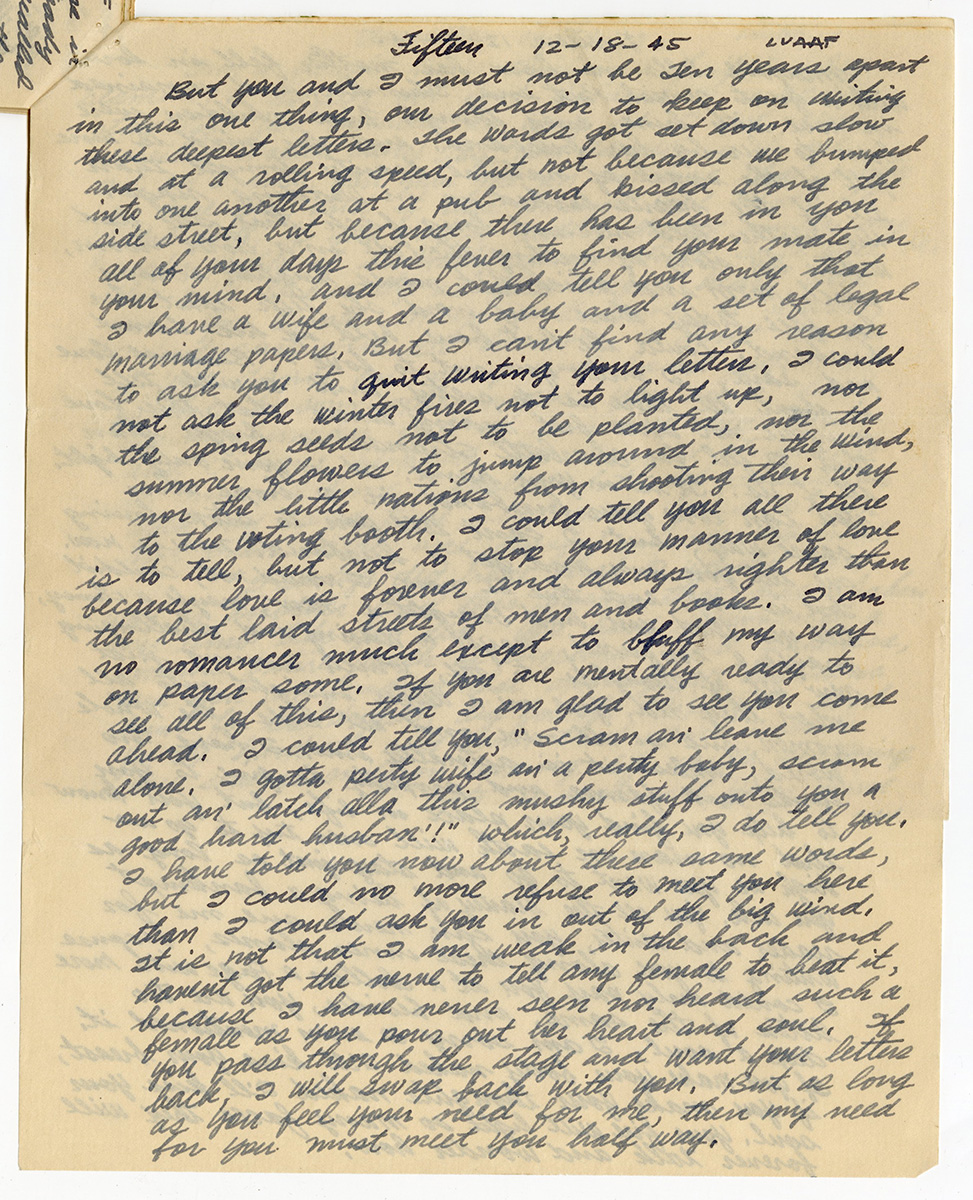 Fifteen 12-18-45 LVAAF
But you and I must not be Ten years apart
in this one thing, our decision to keep on writing
these deepest letters. The words got set down slow
and at a rolling speed, but not because we bumped
into one another at a pub and kissed along the
side street, but because there has been in you
all of your days this fever to find your mate in
your mind. And I could tell you only that
I have a wife and a baby and a set of legal
marriage papers. But I can't find any reason
to ask you to quit writing your letters. I could
not ask the winter fires not to light up, nor
the sping seeds not to be planted, nor the
summer flowers to jump around in the wind,
nor the little nations from shooting their way
to the voting booth. I could tell you all there
is to tell, but not to stop your manner of love
because love is forever and always righter than
the best laid streets of men and books. I am
no romancer much except to bluff my way
on paper some. If you are mentally ready to
see all of this, then I am glad to see you come
ahead. I could tell you, "Scram an' leave me
alone. I gotta perty wife an' a perty baby, scram
out an' latch alla this mushy stuff onto you a
good hard husban'!" which, really, I do tell you.
I have told you now about these same words,
but I could no more refuse to meet you here
than I could ask you in out of the big wind.
It is not that I am weak in the back and
haven't got the nerve to tell any female to beat it,
because I have never seen nor heard such a
female as you pour out her heart and soul. If
you pass through the stage and want your letters
back, I will swap back with you. But as long
as you feel your need for me, then my need
for you must meet you half way.